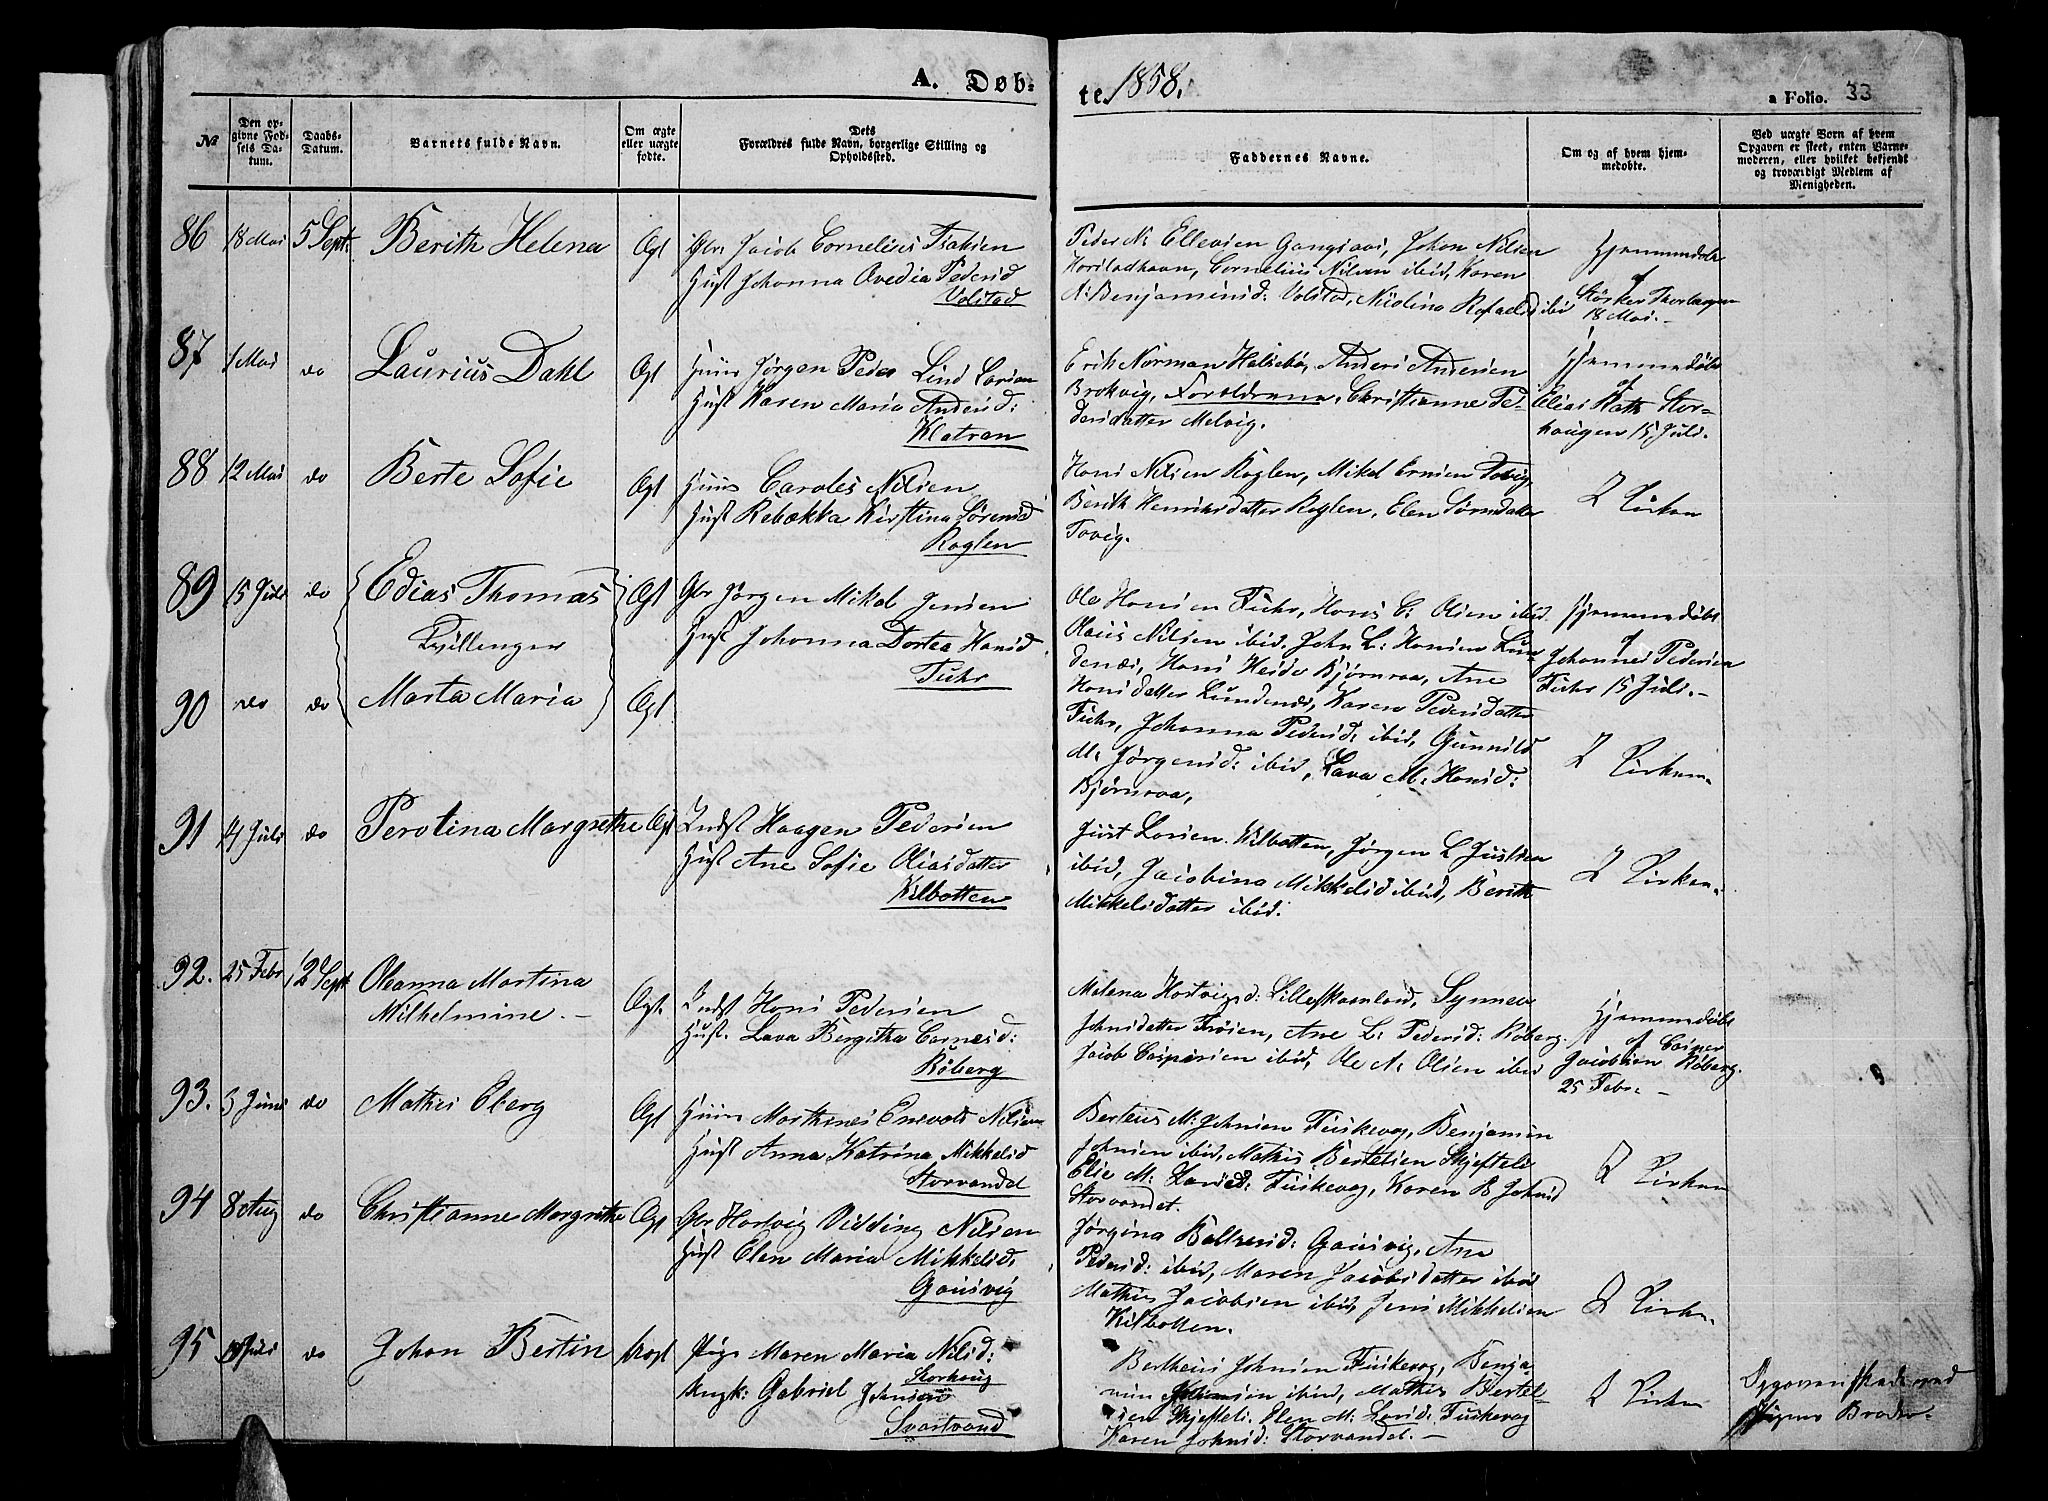 A. Døb-
te. 1858.
a Folio. 33
№
Den op-
givne Fød-
sels Da-
tum.
Daabs-
Datum.
Barnets fulde Navn.
Om ægte
eller uægte
fødte.
Dets
Forældres fulde Navn, borgerlige Stilling og
Opholdssted.
Faddernes Navne.
Om og af hvem hjem-
medøbte.
Ved uægte Børn af hvem
Opgaven er skeet, enten Barne-
moderen, eller hvilket bekjendt
og troværdigt Medlem af
Menigheden.
86 18 Mai 5 Sept. Berith Helena Ægt Gbr. Jacob Cornelius Isaksen
Hust Johanna Ovedia Pedersd
Volstad
Peder N. Ellevsen Gangsaas, Johan Nilsen
Horstadhavn, Cornelius Nilsen ibid, Karen
N: Benjaminsd: Volstad, Nicolina Rafaelsd ibid
Hjemmedøbt
af
Størker Thorlagsen
18 Mai. –
87 1 Mai do Laurius Dahl Ægt Huus Jørgen Peder Lind Larsen
Hust Karen Maria Andersd:
Klatran
Erik Norman Halsebø, Anders Andersen
Brokvig, Forældrene, Christianne Pe-
dersdatter Melvig.
Hjemmedøbt
af
Elias Rath Stor-
haugen 15 Juli.
88 12 Mai do Berte Sofie Ægt Huus Caroles Nilsen
Hust Rebækka Kirstina Sørensd
Roglen
Hans Nilsen Roglen, Mikal Ernsen Tovig,
Berith Henriksdatter Roglen, Elen Sørnsdatter
Tovig.
I Kirken
89 15 Juli do Edias Thomas Ægt Gbr Jørgen Mikal Jensen
Tvillinger
Hust Johanna Dortea Hansd.
Fuhr
90 do do Marta Maria Ægt
Ole Hansen Fuhr, Hans C: Olsen ibid.
Olaus Nilsen ibid. John L: Hansen Lun-
denæs, Hans Heide Bjørnraa, Ane
Hansdatter Lundenæs, Karen Pedersdatter
Fuhr, Johanna Pedersd: ibid, Gunnild
M: Jørgensd: ibid, Lava M: Hansd:
Bjørnraa,
Hjemmedøbt
af
Johannes Pedersen
Fuhr 15 Juli. –
I Kirken.
91 14 Juli do Perolina Margrethe Ægt Indst Haagen Pedersen
Hust Ane Sofie Oliasdatter
Kilbotten
Just Larsen Kilbotten, Jørgen L Justsen
ibid, Jacobina Mikkelsd ibid, Berith
Mikkelsdatter ibid.
I Kirken.
92. 25 Febr 12 Sept. Oleanna Martina
Wilhelmine. –
Ægt. Indst Hans Pedersen
Hust. Lava Bergitha Cornesd:
Røberg
Milena Hartvigsd: Lilleskamland, Synnev
Johnsdatter Trøsen, Ane L: Pedersd: Røberg.
Jacob Caspersen ibid, Ole A: Olsen ibid
Hjemmedøbt
af Casper
Jacobsen Røberg.
25 Febr. –
93. 3 Juni do Mathis Eberg Ægt Huus Marthines Enevold Nilsen
Hust Anna Katrina Mikkelsd
Storvandet
Berteus M: Johnsen Fiskevog, Benjamin
Johnsen ibid, Mathis Bertelsen Skjefteli
Elie M: Larsd: Fiskevog, Karen B Johnsd
Storvandet.
I Kirken
94 8 Aug do Christianne Margrethe Ægt Gbr Hartvig Vidding Nilsen
Hust Elen Maria Mikkelsd.
Gausvig
Jørgina Baltsersd: Gausvig, Ane
Pedersd: ibid, Maren Jacobsdatter ibid
Mathis Jacobsen ibid, Jens Mikkelsen
Kilbotten.
I Kirken.
95 Juli do Johan Bertin Uægt Pige Maren Maria Nilsd:
Storhaug
Ungk: Gabriel Johnsen
Svartvand
Bertheus Johnsen Fiskevog, Benja-
min Johnsen ibid, Mathis Bertel-
sen Skjefteli. Elen M: Larsd: Fiskevog
Karen Johnsd: Storvandet. –
I Kirken
Opgaven skede ved
Pigens Broder.